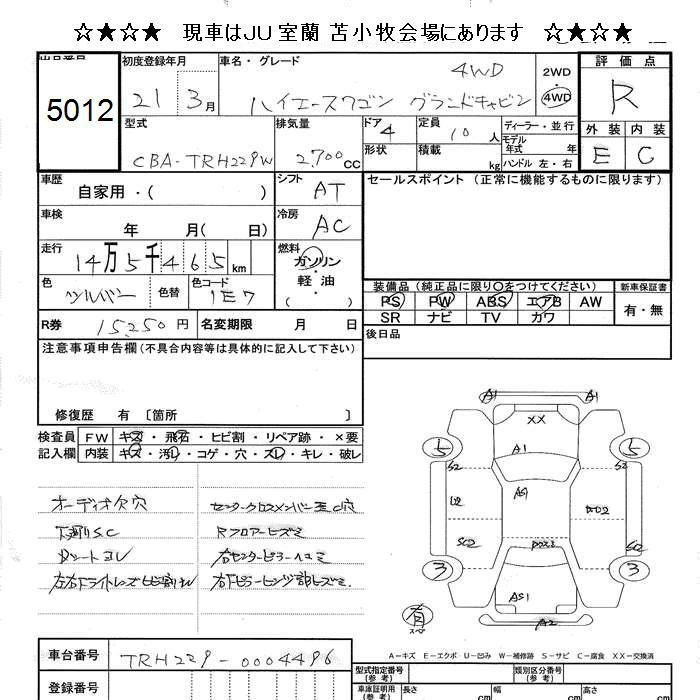 ☆★☆★ 現車はJU室蘭 苫小牧会場にあります ☆★☆★
出品番号 初度登録年月 車名・グレード 評価点
5012 21年 3月 ハイエースワゴン グランドキャビン 4WD 2WD 4WD R
型式 排気量 ドア 定員 ディーラー・並行 外装 内装
CBA-TRH229W 2,700cc 4 10人 モデル年式 年 E C
形状 積載 kg ハンドル 左・右
車歴 自家用・( ) シフト AT セールスポイント (正常に機能するものに限ります)
車検 年 月( 日) 冷房 AC
走行 14万5千465km 燃料 ガソリン・軽油・( )
色 シルバー 色替 色コード 1E7
装備品 (純正品に限り○をつけてください) 新車保証書
PS PW ABS エアB AW 有・無
SR ナビ TV カワ
R券 15250円 名変期限 月 日 後日品
注意事項申告欄 (不具合内容等は具体的に記入して下さい)
修復歴 有 〔箇所 〕
検査員記入欄 FW キズ・飛石・ヒビ割・リペア跡・×要
内装 キズ・汚れ・コゲ・穴・スレ・キレ・破レ
オーディオ欠穴
下廻りSC
Rフロアーヒズミ
右センターピラーヘコミ
A1 A1
XX
A1
5 5
S2 S2
A91
U2
SC2 SC2
3 3
AS1
A2
有
スペア
A－キズ E－エクボ U－凹み W－補修跡 S－サビ C－腐食 XX－交換済
車台番号 TRH229-0004496
登録番号
型式指定番号 (参考) 類別区分番号 (参考)
車庫証明用 (参考) 長さ cm 幅 cm 高さ cm